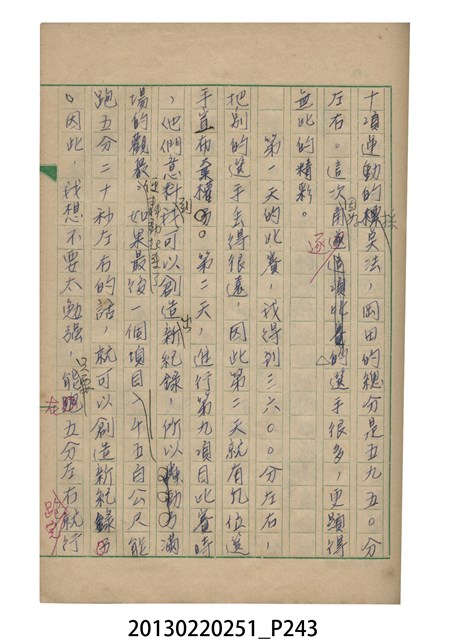 十項運動的採点法，岡田的總分是五九五〇分
左右。這次因為逐項的選手很多，更顯得
無比的精彩。
第一天的比賽，我得到三六〇〇分左右，
把別的選手丟得很遠，因此第二天就有九位選
手宣布棄權。第二天，進行第九項目比賽時
，他們意料到可以創造出新紀錄，所以滿
場的觀眾。如果最後一個項目一千五百公尺能
跑五分二十秒左右的話，就可以創造新紀錄
。因此，我想不要太勉強，只要能在五分左右跑完就行
20130220251_P243